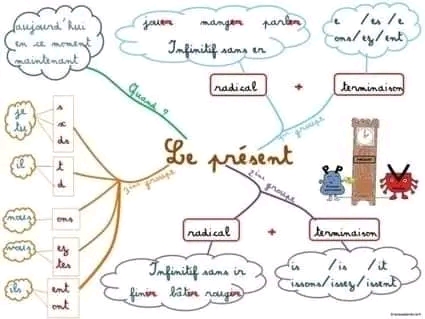 aujourd'hui
en ce moment
maintenant
Quand ?
jouer manger parler
Infinitif sans er
e /es /e
ons/ez/ent
radical + terminaison
1er groupe
Le présent
je
tu
s
x
ds
il
t
d
nous
ons
vous
ez
tes
ils
ent
ont
3ème groupe
2ème groupe
radical + terminaison
Infinitif sans ir
finir bâtir rougir
is /is /it
issons/issez/issent